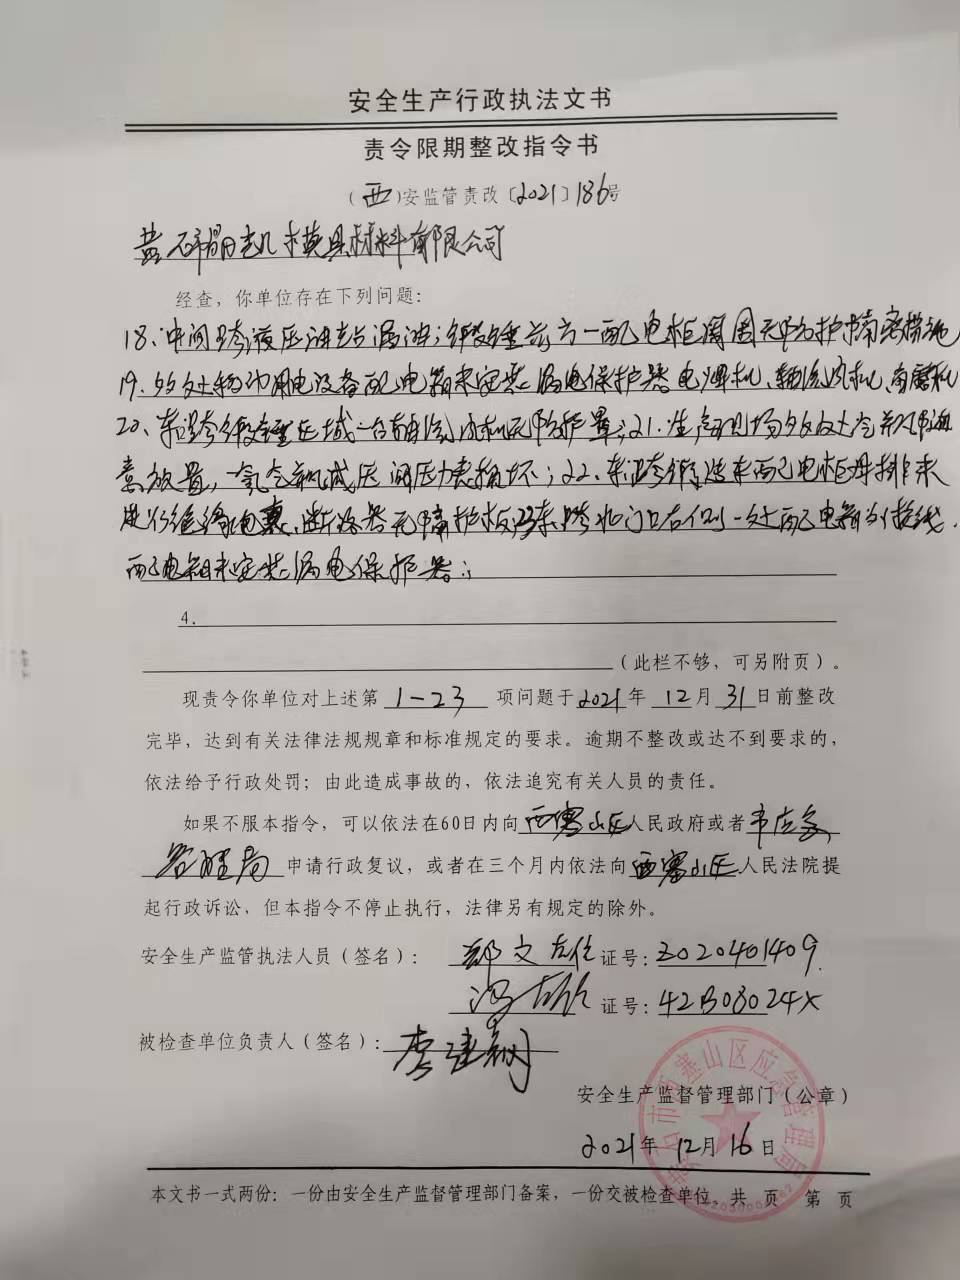 安全生产行政执法文书
责令限期整改指令书
(西)安监管责改〔2021〕186号
黄石 模具材料有限公司
经查，你单位存在下列问题：
18、中间跨液压油站漏油；锻锤前方一配电柜周围无防护隔离措施
19、多处移动用电设备配电箱未安装漏电保护器 电焊机、轴流风机、角磨机
20、东跨锻锤区域一台轴流风机无防护罩；21.生产现场多处氧气瓶随
意放置，一氧气瓶减压阀压力表损坏；22、东跨锻造车配电柜母排未
进行绝缘包裹、断路器无隔护板；23东跨北门口右侧一处配电箱外接线，
配电箱未安装漏电保护器；
4.
（此栏不够，可另附页）。
现责令你单位对上述第 1-23 项问题于2021年 12月 31日前整改
完毕，达到有关法律法规规章和标准规定的要求。逾期不整改或达不到要求的，
依法给予行政处罚；由此造成事故的，依法追究有关人员的责任。
如果不服本指令，可以依法在60日内向西塞山区人民政府或者市应急
管理局 申请行政复议，或者在三个月内依法向西塞山区人民法院提
起行政诉讼，但本指令不停止执行，法律另有规定的除外。
安全生产监管执法人员（签名）： 郑文 证号：3020401409
冯 证号：42B08024X
被检查单位负责人（签名）：李建钢
安全生产监督管理部门（公章）
黄石市西塞山区应急管理局
2021年 12月 16日
本文书一式两份：一份由安全生产监督管理部门备案，一份交被检查单位。共 页 第 页